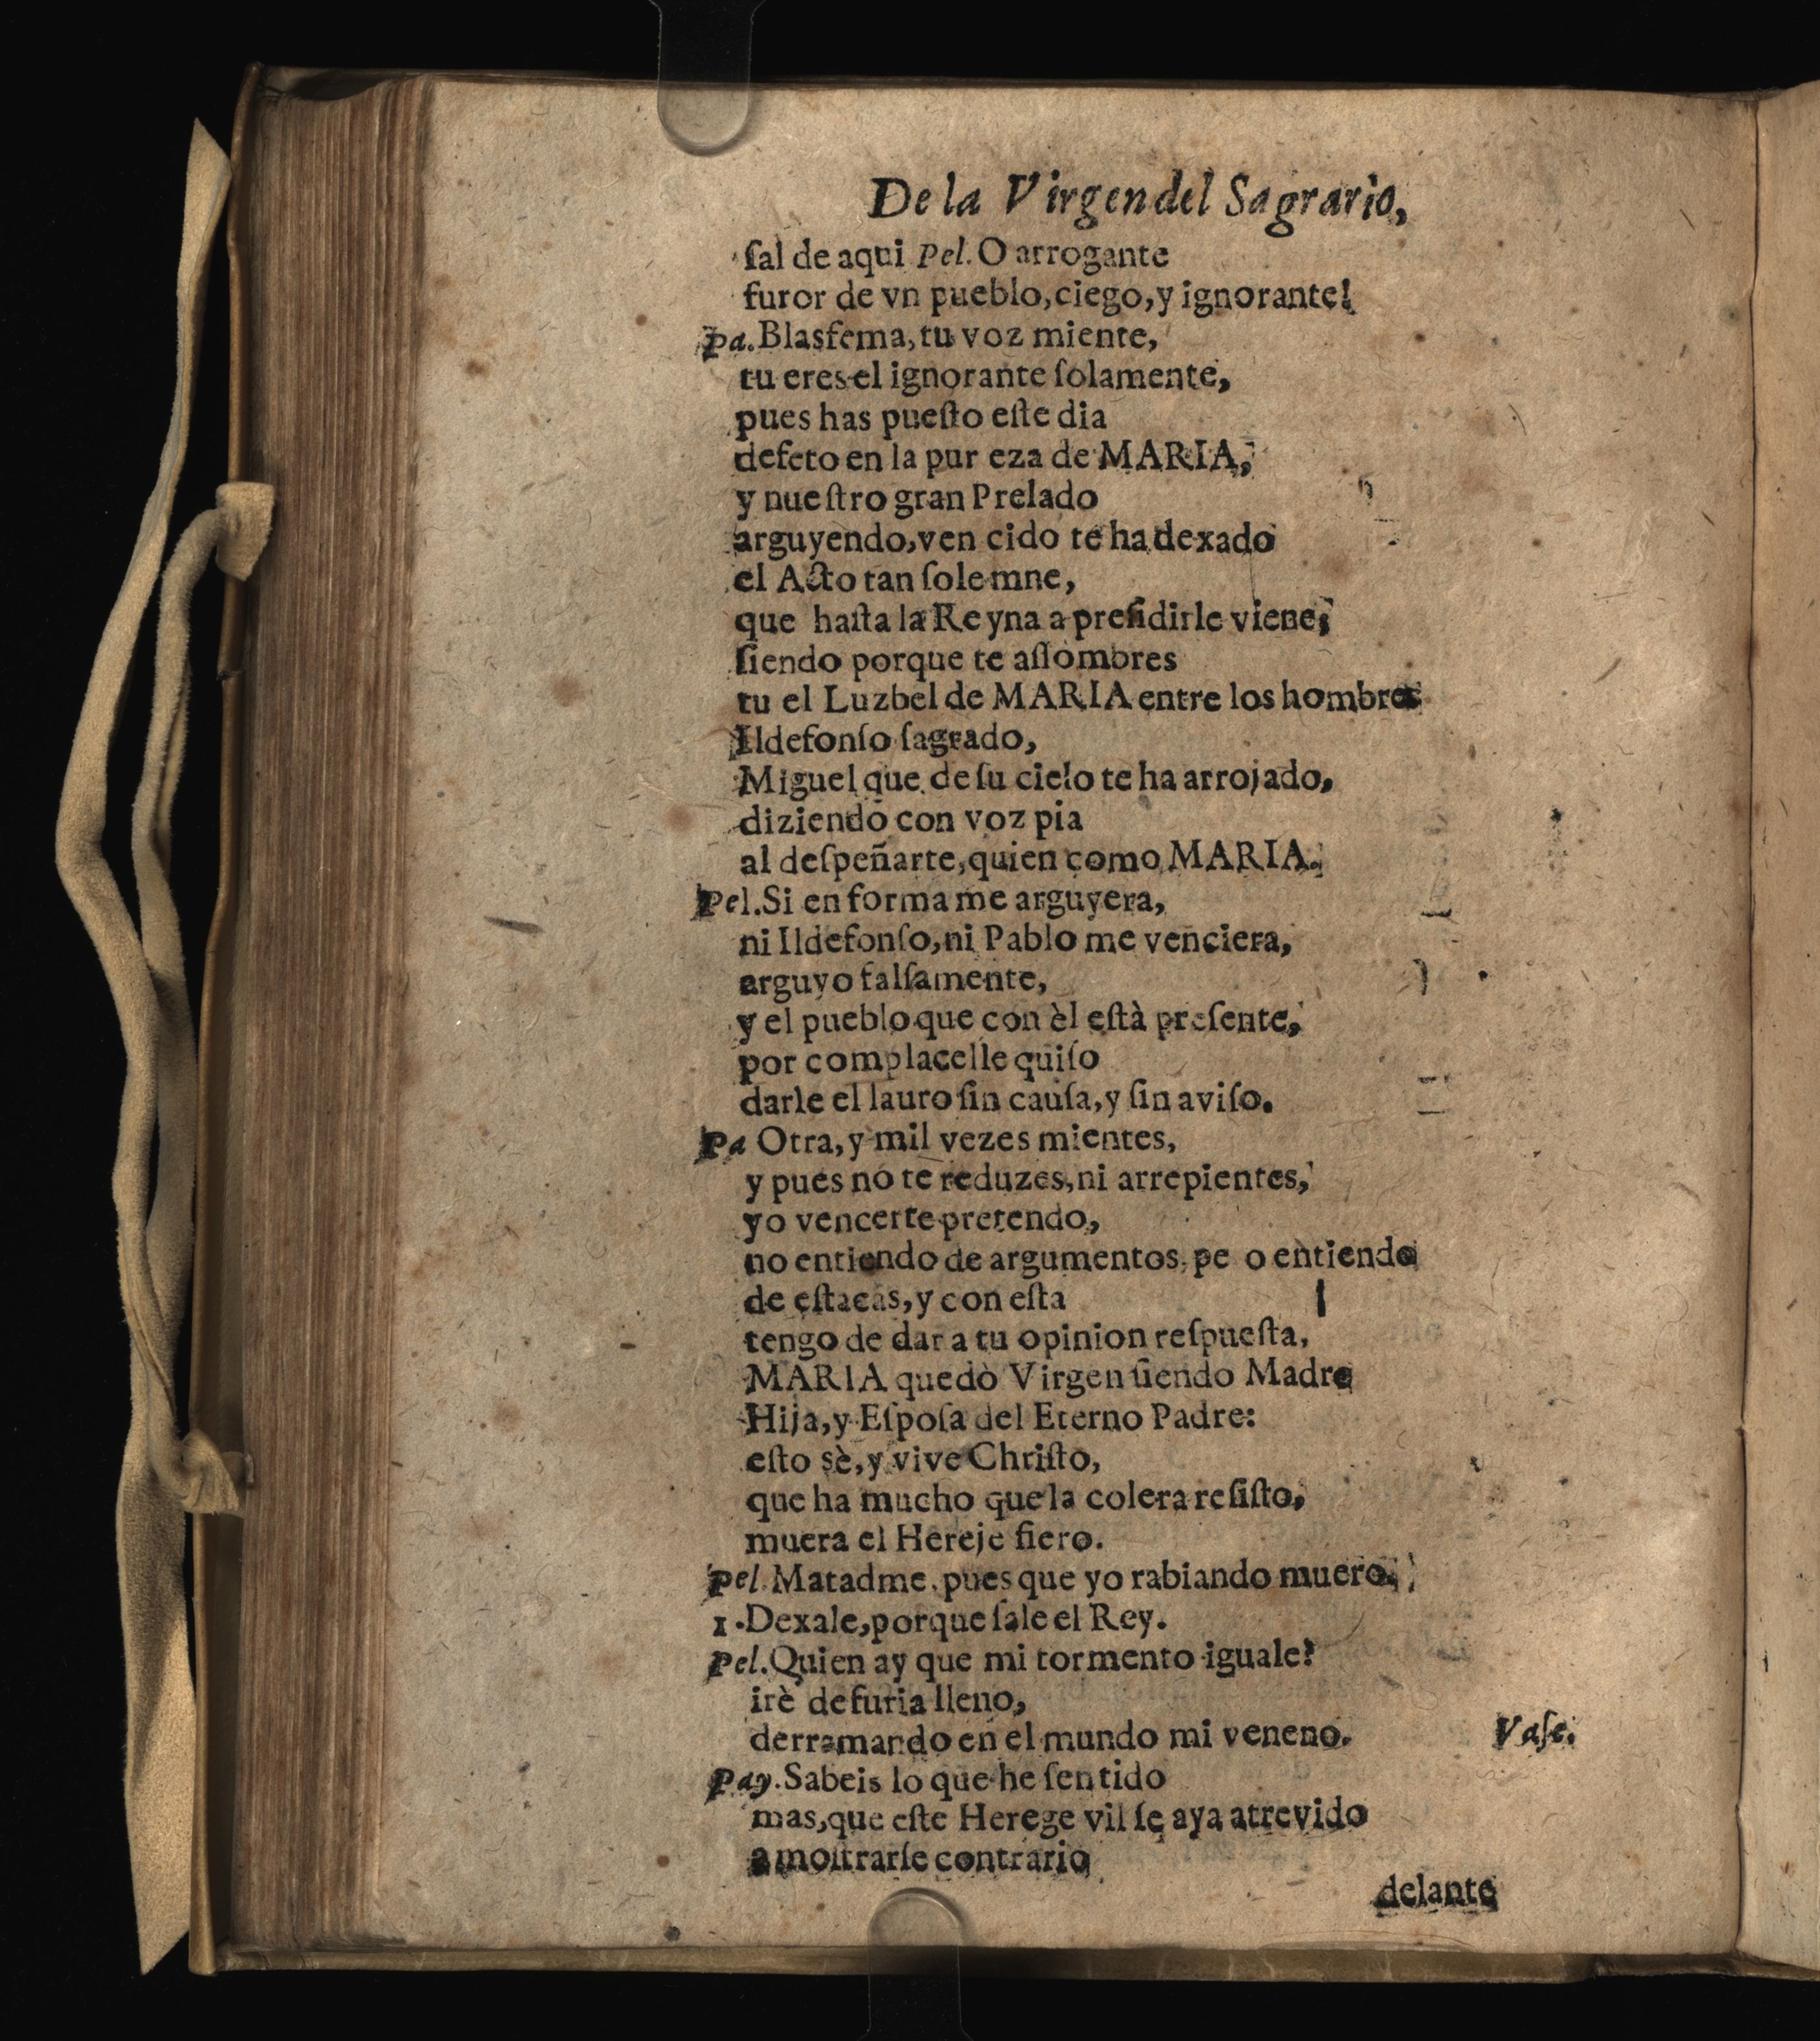 De la Virgen del Sagrario,
ſal de aqui Pel. O arrogante
furor de vn pueblo, ciego, y ignorante!
Pa. Blasfema, tu voz miente,
tu eres el ignorante ſolamente,
pues has pueſto eſte dia
defeto en la pur eza de MARIA,
y nueſtro gran Prelado
arguyendo, ven cido te ha dexado
el Acto tan ſolemne,
que haſta la Reyna a preſidirle viene;
ſiendo porque te aſſombres
tu el Luzbel de MARIA entre los hombres
Ildefonſo ſagrado,
Miguel que de ſu cielo te ha arrojado,
diziendo con voz pia
al deſpeñarte, quien como MARIA.
Pel. Si en forma me arguyera,
ni Ildefonſo, ni Pablo me venciera,
arguyo falſamente,
y el pueblo que con èl eſtà preſente,
por complacelle quiſo
darle el lauro ſin cauſa, y ſin aviſo.
Pa Otra, y mil vezes mientes,
y pues no te reduzes, ni arrepientes,
yo vencerte pretendo,
no entiendo de argumentos, pe o entiendo
de eſtacas, y con eſta
tengo de dar a tu opinion reſpueſta,
MARIA quedò Virgen ſiendo Madre
Hija, y Eſpoſa del Eterno Padre:
eſto sè, y vive Chriſto,
que ha mucho que la colera reſiſto,
muera el Hereje fiero.
Pel. Matadme, pues que yo rabiando muero.
1. Dexale, porque ſale el Rey.
Pel. Quien ay que mi tormento iguale?
irè de furia lleno,
derramando en el mundo mi veneno. Vaſe.
Pay. Sabeis lo que he ſentido
mas, que eſte Herege vil ſe aya atrevido
a moſtrarſe contrario
delante